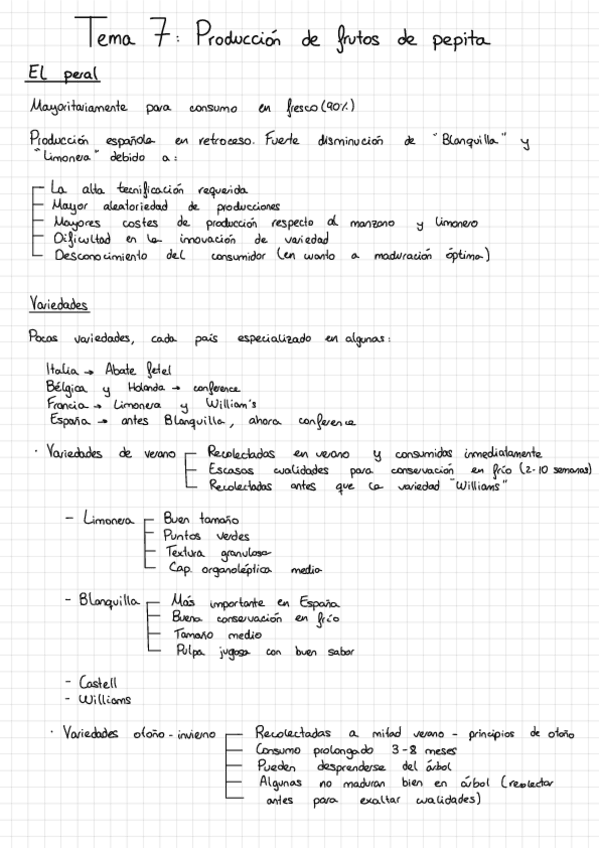 Tema 7: Producción de frutos de pepita
El peral
Mayoritariamente para consumo en fresco (90%)
Producción española en retroceso. Fuerte disminución de "Blanquilla" y
"Limonera" debido a:
La alta tecnificación requerida
Mayor aleatoriedad de producciones
Mayores costes de producción respecto al manzano y limonero
Dificultad en la innovación de variedad
Desconocimiento del consumidor (en cuanto a maduración óptima)
Variedades
Pocas variedades, cada país especializado en algunas:
Italia → Abate fetel
Bélgica y Holanda → conference
Francia → Limonera y William's
España → antes Blanquilla, ahora conference
· Variedades de verano Recolectadas en verano y consumidas inmediatamente
Escasas cualidades para conservación en frío (2-10 semanas)
Recolectadas antes que la variedad "Williams"
- Limonera Buen tamaño
Puntos verdes
Textura granulosa
Cap. organoléptica media
- Blanquilla Más importante en España
Buena conservación en frío
Tamaño medio
Pulpa jugosa con buen sabor
- Castell
- Williams
· Variedades otoño - invierno Recolectadas a mitad verano - principios de otoño
Consumo prolongado 3-8 meses
Pueden desprenderse del árbol
Algunas no maduran bien en árbol (recolectar
antes para exaltar cualidades)